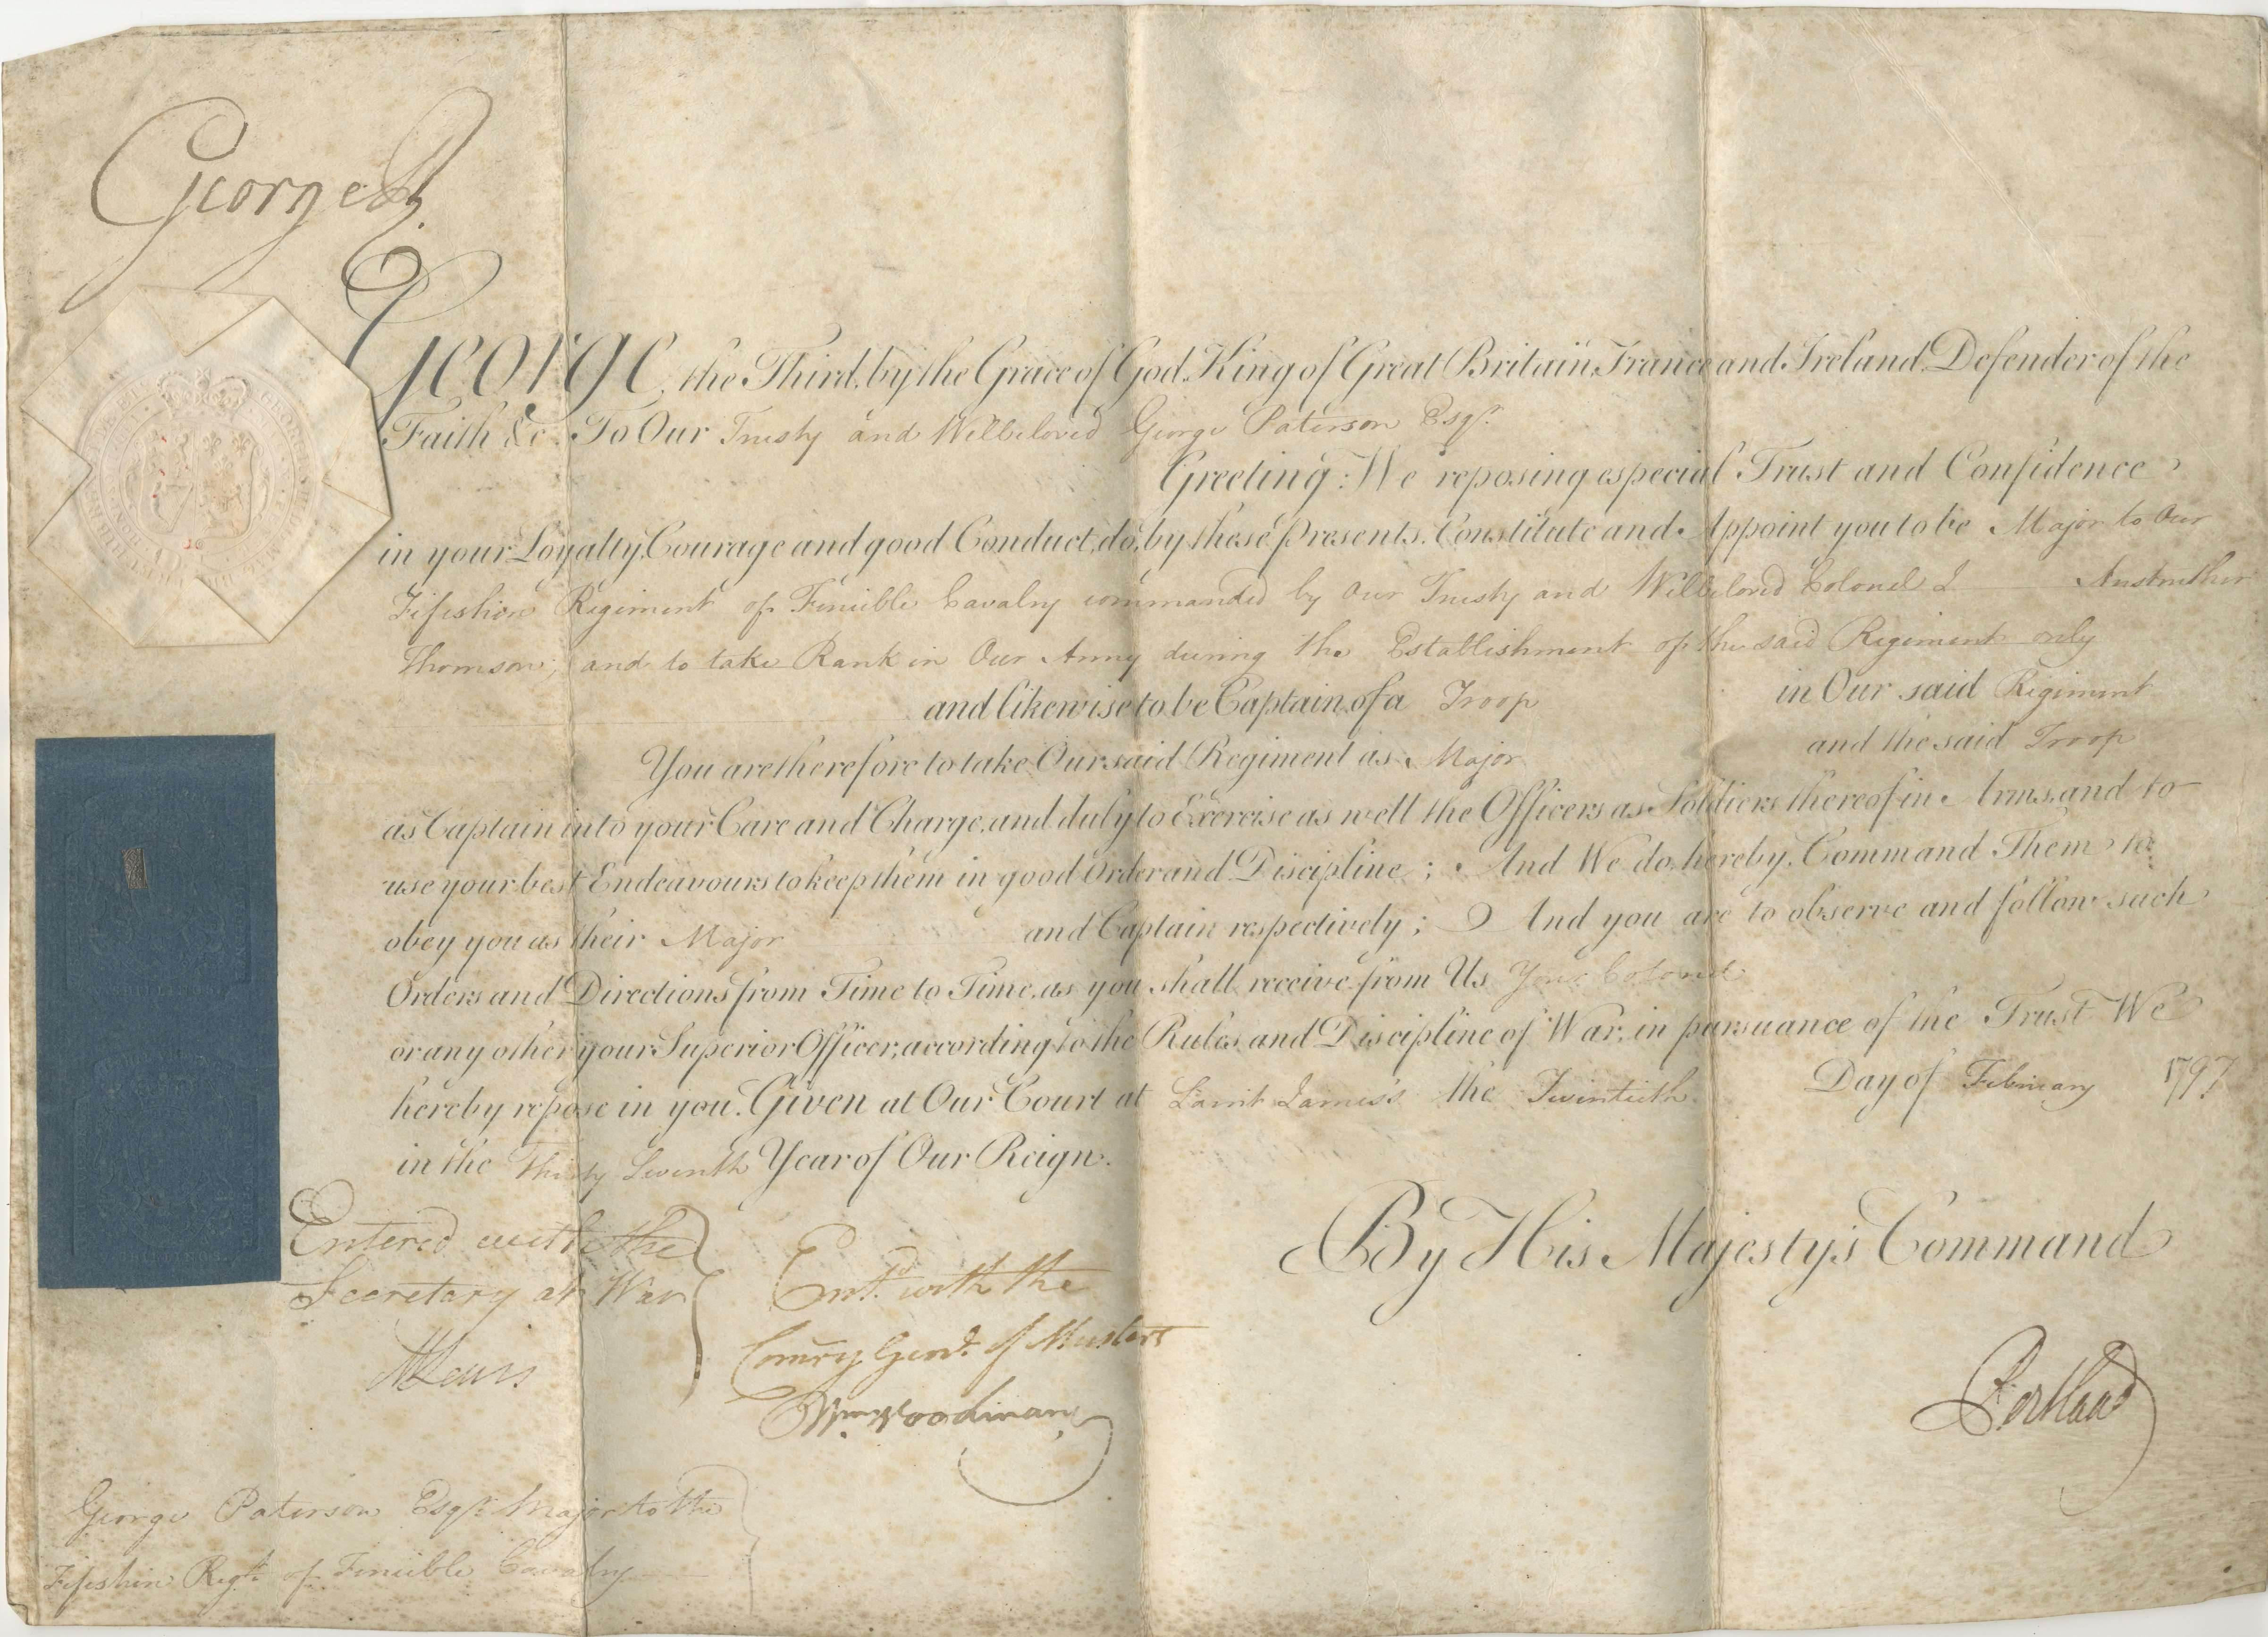 George R.
George the Third, by the Grace of God, King of Great Britain, France and Ireland, Defender of the
Faith &c. To Our Trusty and Wellbeloved George Paterson Esqr.
Greeting: We reposing especial Trust and Confidence
in your Loyalty, Courage and good Conduct, do, by these Presents, Constitute and Appoint you to be Major to Our
Fifeshire Regiment of Fencible Cavalry commanded by Our Trusty and Wellbeloved Colonel J Anstruther
Thomson, and to take Rank in Our Army during the Establishment of the said Regiment only
and likewise to be Captain of a Troop in Our said Regiment
You are therefore to take Our said Regiment as Major and the said Troop
as Captain into your Care and Charge, and duly to Exercise as well the Officers as Soldiers thereof in Arms, and to
use your best Endeavours to keep them in good Order and Discipline; And We do hereby Command Them to
obey you as their Major and Captain respectively; And you are to observe and follow such
Orders and Directions from Time to Time, as you shall receive from Us Your Colonel
or any other your Superior Officer, according to the Rules and Discipline of War, in pursuance of the Trust We
hereby repose in you. Given at Our Court at Saint James's the Twentieth Day of February 1797
in the Thirty Seventh Year of Our Reign.
By His Majesty's Command
Entered with the
Secretary at War
MLewis
Entd. with the
Comry Genl. of Musters
Wm. Woodman
Portland
George Paterson Esqr. Major to the
Fifeshire Regt. of Fencible Cavalry